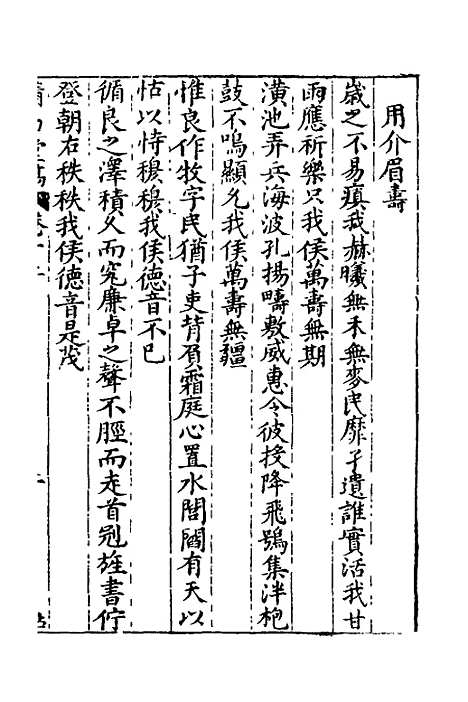 用介眉壽
歲之不易瘨我赫曦無禾無麥民靡孑遺誰實活我甘
雨應祈樂只我侯萬壽無期
潢池弄兵海波孔揚疇敷威惠令彼投降飛鴞集泮枹
鼓不鳴顯允我侯萬壽無疆
惟良作牧字民猶子吏背負霜庭心置水閭閻有天以
怙以恃穆穆我侯德音不已
循良之澤積久而究廉卓之聲不脛而走首剡旌書佇
登朝右秩秩我侯德音是茂